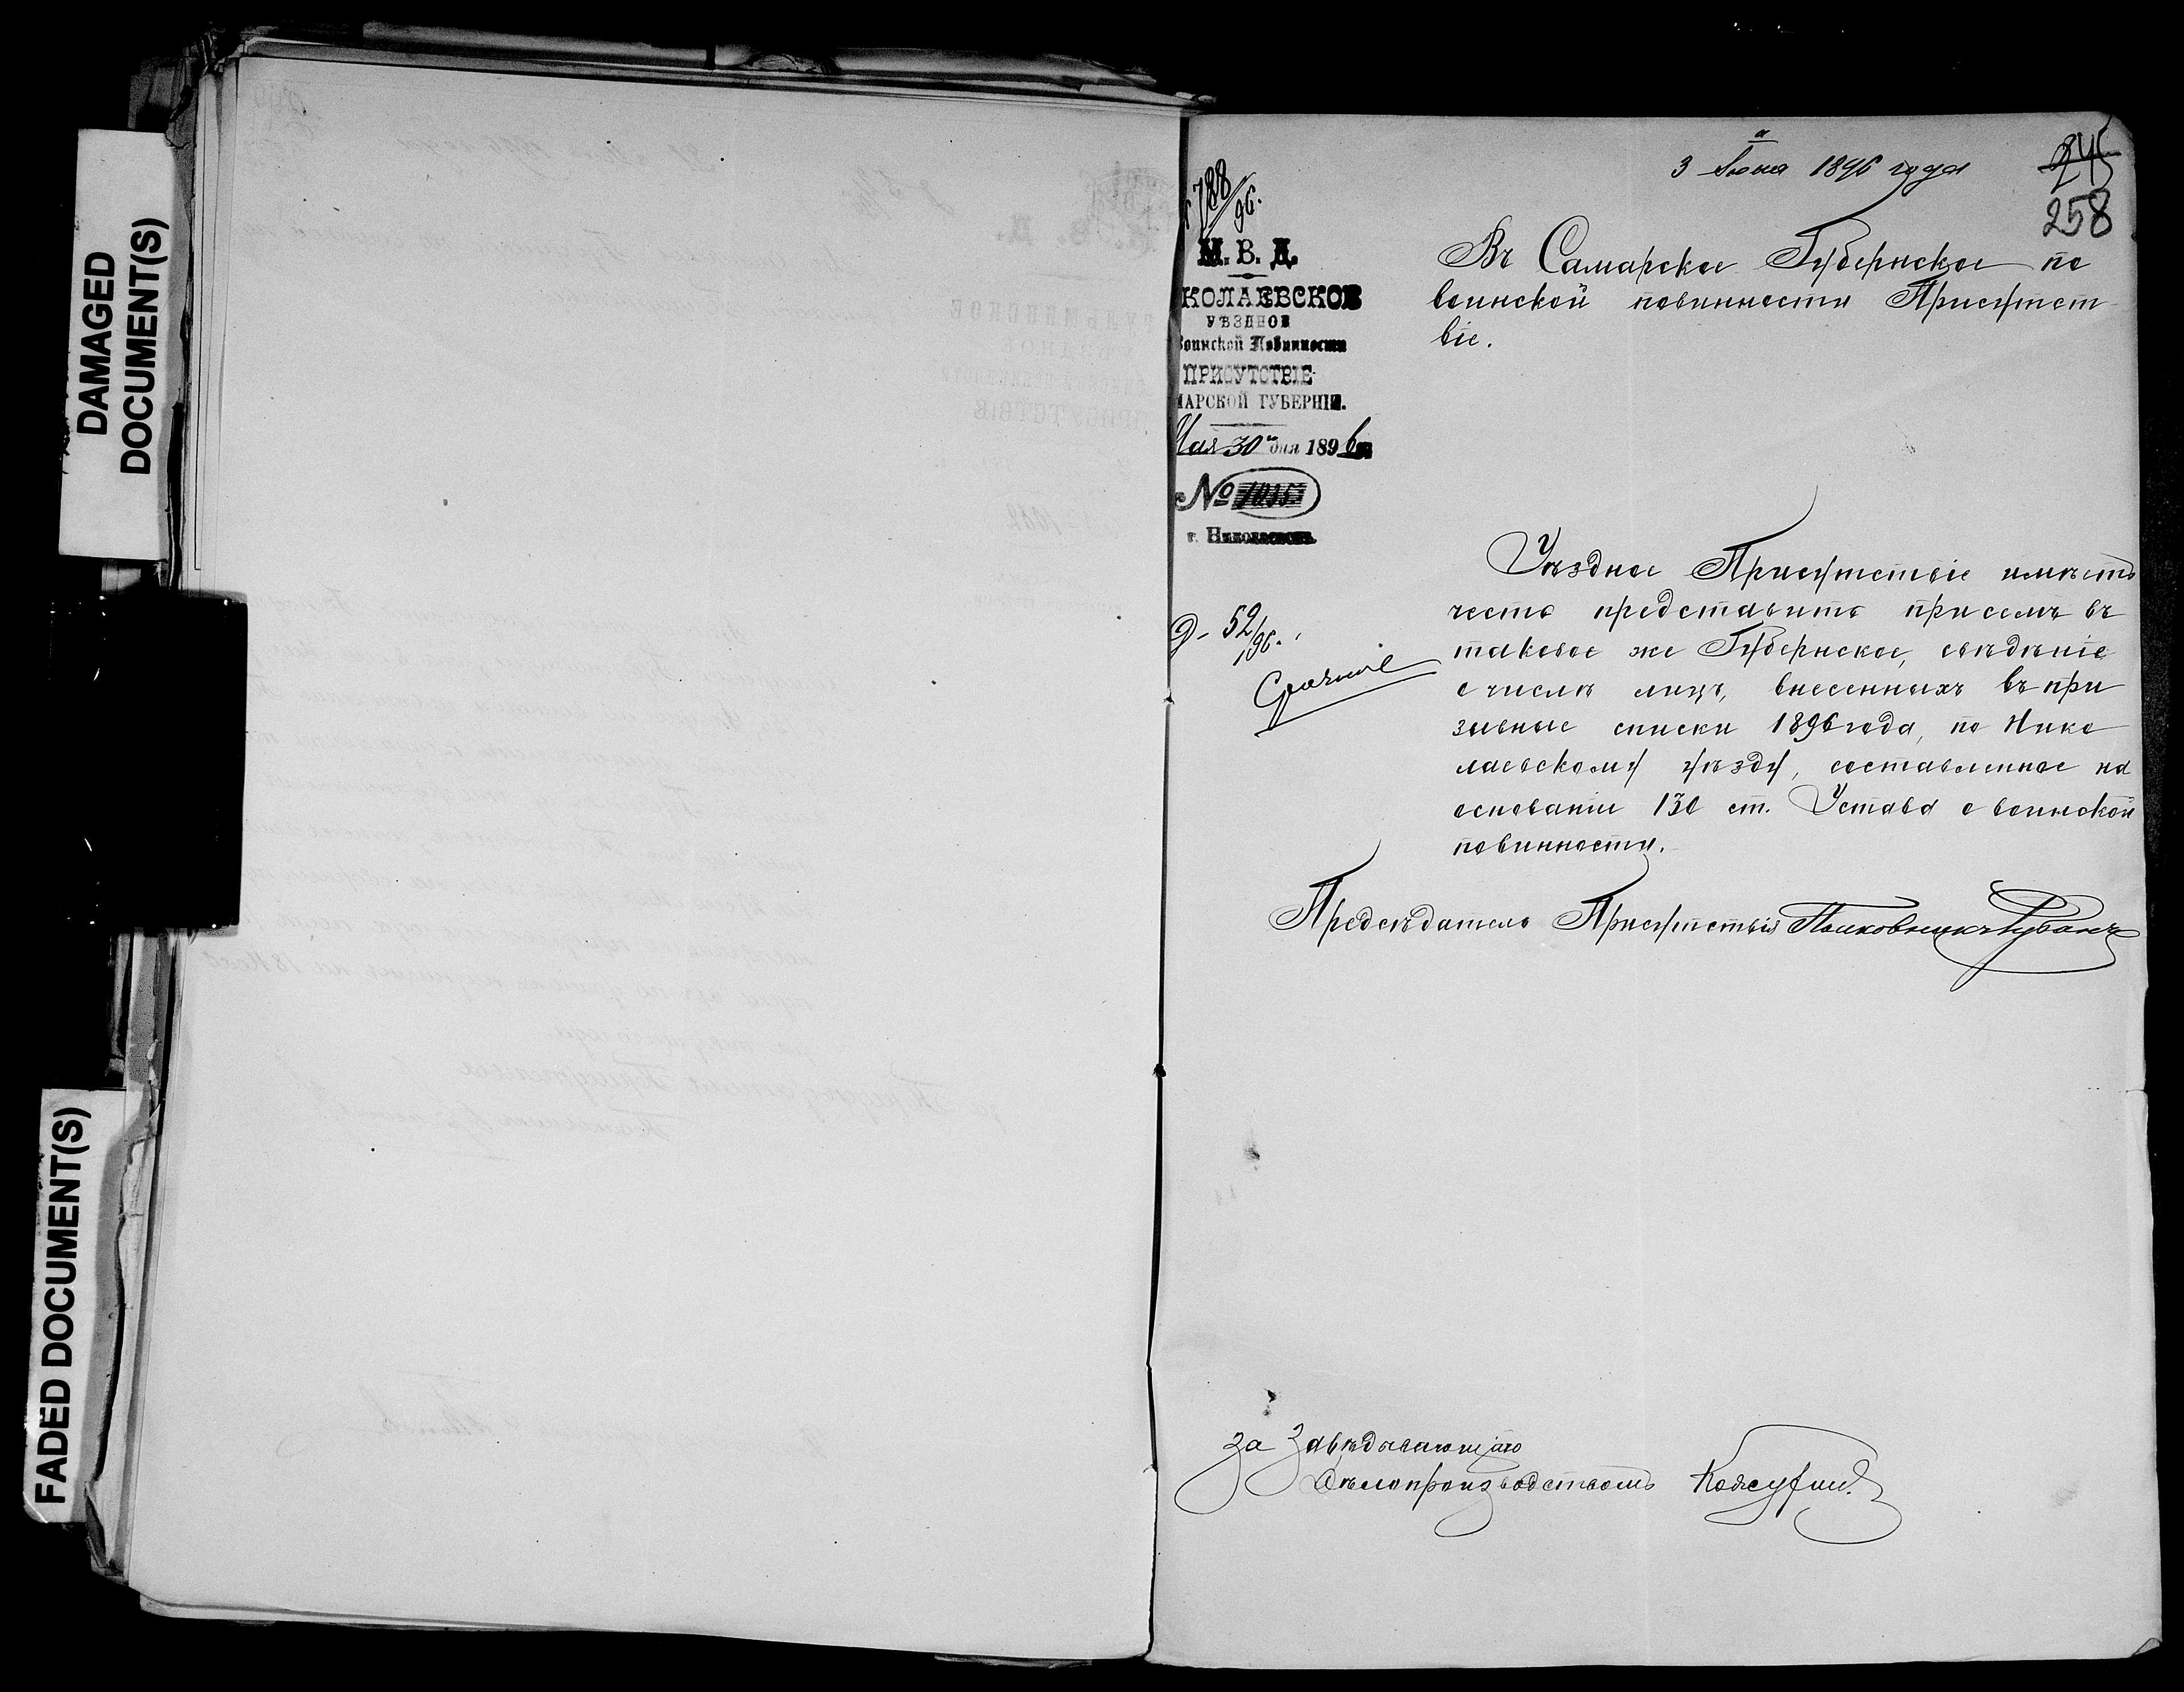 DAMAGED
DOCUMENT(S)
FADED DOCUMENT(S)
3 Іюня 1896 года
245
258
788/96.
М. В. Д.
КОЛАЕВСКОЕ
УѢЗДНОЕ
Воинской Повинности
ПРИСУТСТВІЕ
МАРСКОЙ ГУБЕРНІИ.
Мая 30 дня 1896
№ 1035
г. Николаевскъ
Въ Самарское Губернское по
воинской повинности Присутст
віе.
Д- 52/96.
Срочное
Уѣздное Присутствіе имѣетъ
честь представить при семъ въ
таковое же Губернское, свѣдѣніе
о числѣ лицъ, внесенныхъ въ при
зывные списки 1896 года, по Нико
лаевскому уѣзду, составленное на
основаніи 130 ст. Устава о воинской
повинности.
Предсѣдатель Присутствія Полковникъ
За Завѣдывающаго
Дѣлопроизводствомъ